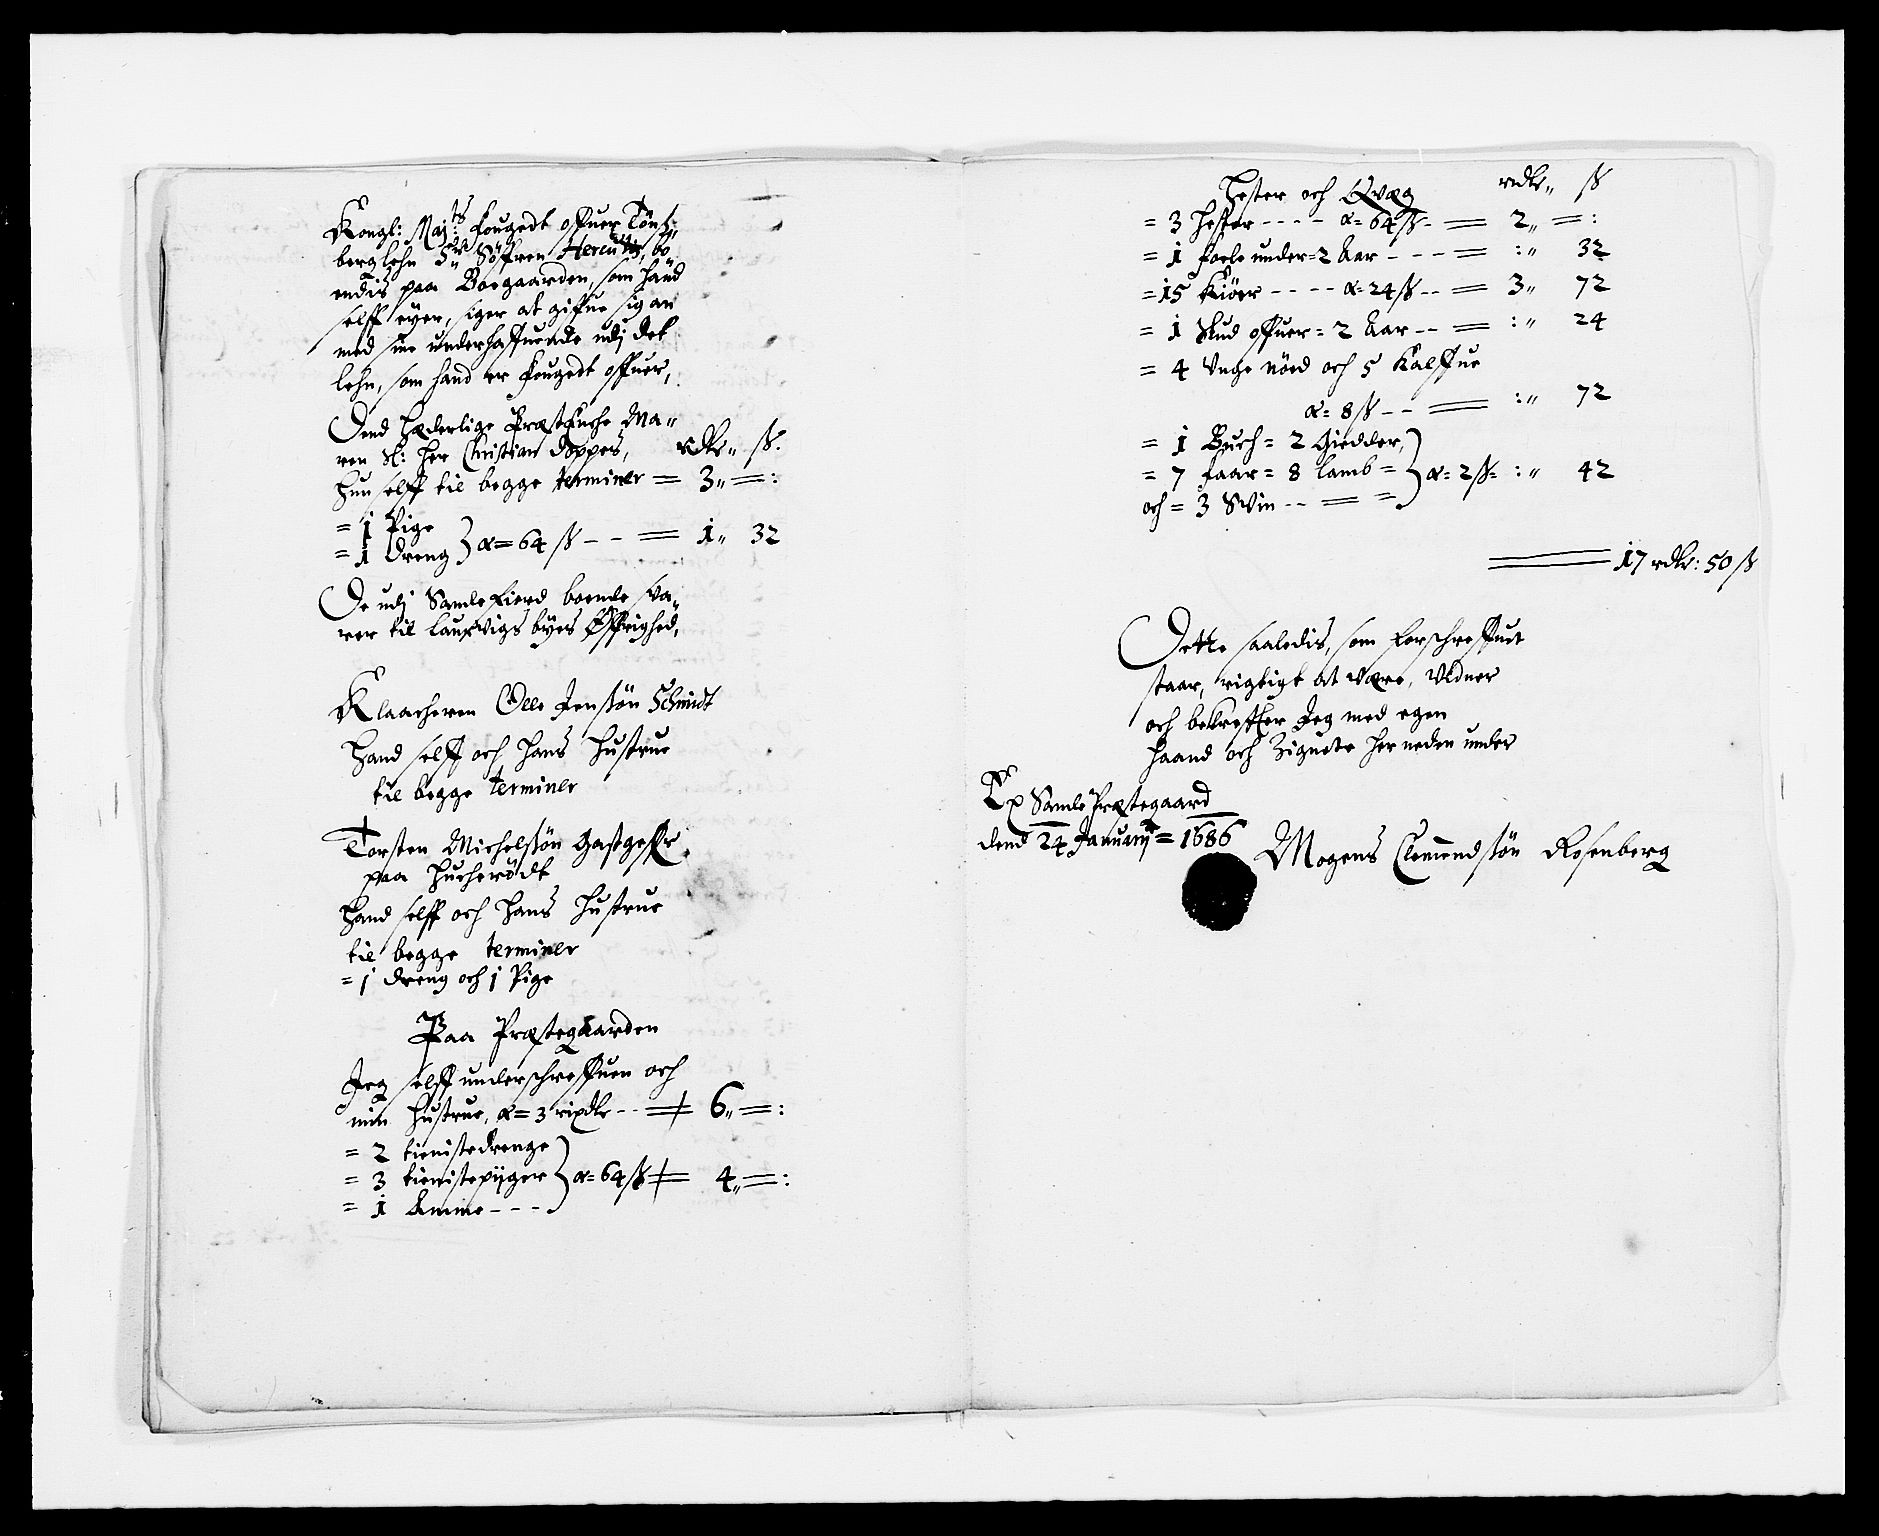 Kongl: Maj:ts Fougedt offuer Töns,,
berglehn Sr. Söffren Hercules, bo
endis paa Boegaarden, som hand
selff eyer, siger at giffue sig an
med sine underhaffuende udj det
lehn, som hand er Fougedt offuer,
Dend Hæderlige Præstenche Ma,,
ren Sl: Her Christian Doppes, rdlr,, ſs.
Hun selff til begge terminer = 3,, = :
= 1 Pige
= 1 dreng } a = 64 ſs - - = 1,, 32
De udj Sande Fierd boende sva,,
rer til Laurvigs byes Øffrighed,
Klaacheren Olle Jenssön Schmidt
Hand selff och Hans Hustrue
til begge terminer
Torsten Michelssön Gastgeffr
paa Hucherödt
Hand selff och Hans Hustrue
til begge terminer
= 1 dreng och 1 Pige
Paa Præstegaarden
Jeg selff underschreffuen och
min Hustrue, a = 3 rixdlr - - = 6,, = :
= 2 tienistedrenge
= 3 tienistepijger } a = 64 ſs = 4,, = :
= 1 Amme - - -
Hester och Qvæg rdlr,, ſs
= 3 Hester - - - - a = 64 ſs - = 2,, = :
= 1 foele under = 2 Aar - - - = : ,, 32
= 15 Kiöer - - - - a = 24 ſs - - = 3,, 72
= 1 Stud offuer = 2 Aar - - = : ,, 24
= 4 Unge Nöed och 5 Kalffue
a = 8 ſs - - = : ,, 72
= 1 Buch = 2 Giedder,
= 7 Faar = 8 lamb = } a = 2 ſs = : ,, 42
och = 3 Svin - - = =
17 rdlr: 50 ſs
Dette saaledis, som forschreffuet
staar, rigtigt at være, Vidner
och bekreffter Jeg med egen
Haand och Zignete her neden under
Ex Sande Præstegaard
dend 24 Januarij = 1686 Mogens Clemendssön Rosenberg